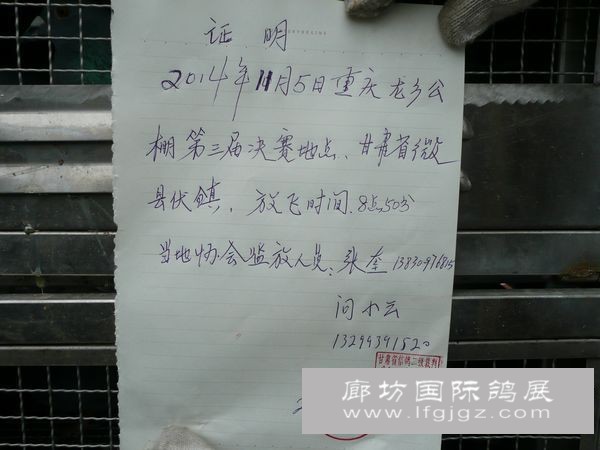 证明
2014年11月5日重庆龙乡公
棚第三届决赛地点、甘肃省微
县伏镇，放飞时间.8点50分
当地协会监放人员：张奎 13830976815
问小云
13299391520
甘肃省信鸽二级裁判
2
廊坊国际鸽展
www.lfgjgz.com